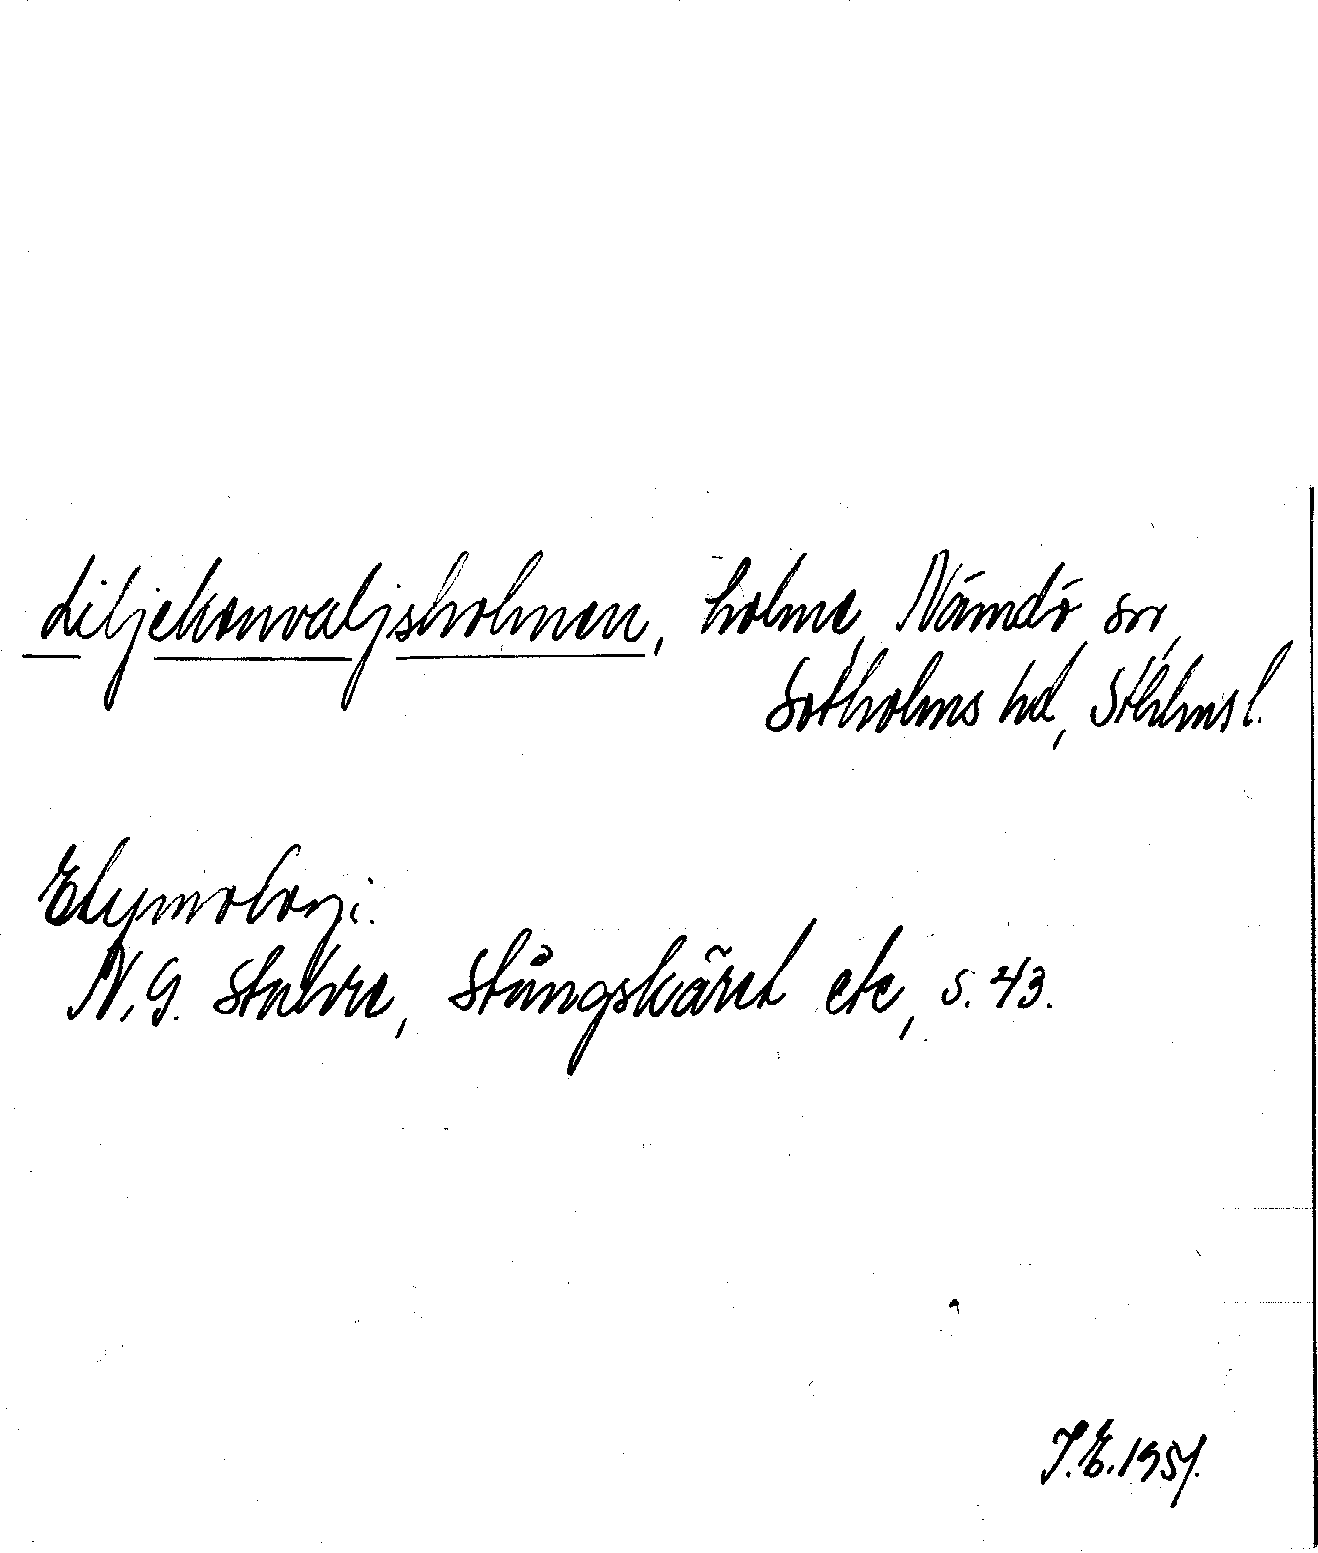 Liljekonvaljsholmen, holme, Nämdö sn,
Sotholms hd, Sthlms l.
Etymologi.
N.G. Stahre, Stångskäret etc, s. 43.
J.E. 1951.